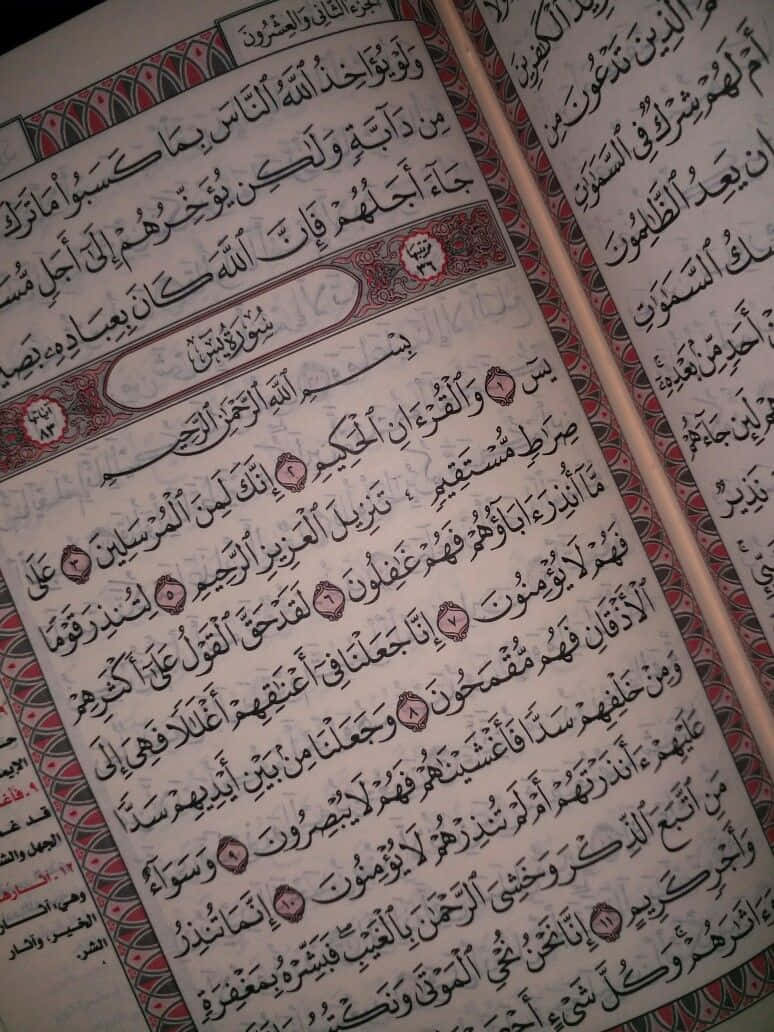 الجزء الثاني والعشرون
وَلَوْ يُؤَاخِذُ ٱللَّهُ ٱلنَّاسَ بِمَا كَسَبُوا۟ مَا تَرَكَ
مِن دَآبَّةٍ وَلَٰكِن يُؤَخِّرُهُمْ إِلَىٰٓ أَجَلٍ
جَآءَ أَجَلُهُمْ فَإِنَّ ٱللَّهَ كَانَ بِعِبَادِهِۦ
ترتيبها ٣٦
سُورَةُ يسٓ
آياتها ٨٣
بِسْمِ ٱللَّهِ ٱلرَّحْمَٰنِ ٱلرَّحِيمِ
يسٓ ١ وَٱلْقُرْءَانِ ٱلْحَكِيمِ ٢ إِنَّكَ لَمِنَ ٱلْمُرْسَلِينَ ٣ عَلَىٰ
صِرَٰطٍ مُّسْتَقِيمٍ تَنزِيلَ ٱلْعَزِيزِ ٱلرَّحِيمِ ٥ لِتُنذِرَ قَوْمًا
مَّآ أُنذِرَ ءَابَآؤُهُمْ فَهُمْ غَٰفِلُونَ ٦ لَقَدْ حَقَّ ٱلْقَوْلُ عَلَىٰٓ أَكْثَرِهِمْ
فَهُمْ لَا يُؤْمِنُونَ ٧ إِنَّا جَعَلْنَا فِىٓ أَعْنَٰقِهِمْ أَغْلَٰلًا فَهِىَ إِلَى
ٱلْأَذْقَانِ فَهُم مُّقْمَحُونَ ٨ وَجَعَلْنَا مِنۢ بَيْنِ أَيْدِيهِمْ سَدًّا
وَمِنْ خَلْفِهِمْ سَدًّا فَأَغْشَيْنَٰهُمْ فَهُمْ لَا يُبْصِرُونَ ٩ وَسَوَآءٌ
عَلَيْهِمْ ءَأَنذَرْتَهُمْ أَمْ لَمْ تُنذِرْهُمْ لَا يُؤْمِنُونَ ١٠ إِنَّمَا تُنذِرُ
مَنِ ٱتَّبَعَ ٱلذِّكْرَ وَخَشِىَ ٱلرَّحْمَٰنَ بِٱلْغَيْبِ فَبَشِّرْهُ بِمَغْفِرَةٍ
وَأَجْرٍ كَرِيمٍ ١١ إِنَّا نَحْنُ نُحْىِ ٱلْمَوْتَىٰ وَنَكْتُبُ
وَءَاثَٰرَهُمْ وَكُلَّ شَىْءٍ
ٱلْكَٰفِرِينَ
ٱلَّذِينَ تَدْعُونَ مِن
أَمْ لَهُمْ شِرْكٌ فِى ٱلسَّمَٰوَٰتِ
إِن يَعِدُ ٱلظَّٰلِمُونَ
ٱلسَّمَٰوَٰتِ
أَحَدٍ مِّنۢ بَعْدِهِۦٓ
لَئِن جَآءَهُمْ
نَذِيرٌ
٩. فأغ
قد غط
الجهل والش
١٢. آثارهم
وهي، آثار
الخير، وآثار
الشر.